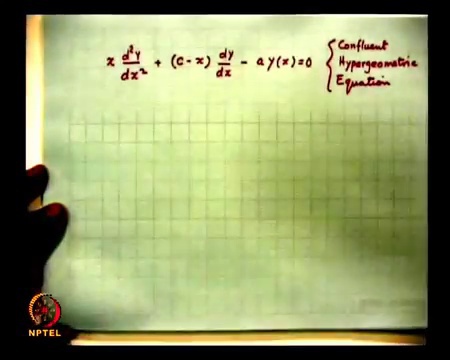 x d²y/dx² + (c - x) dy/dx - a y(x) = 0 { Confluent
Hypergeometric
Equation
NPTEL